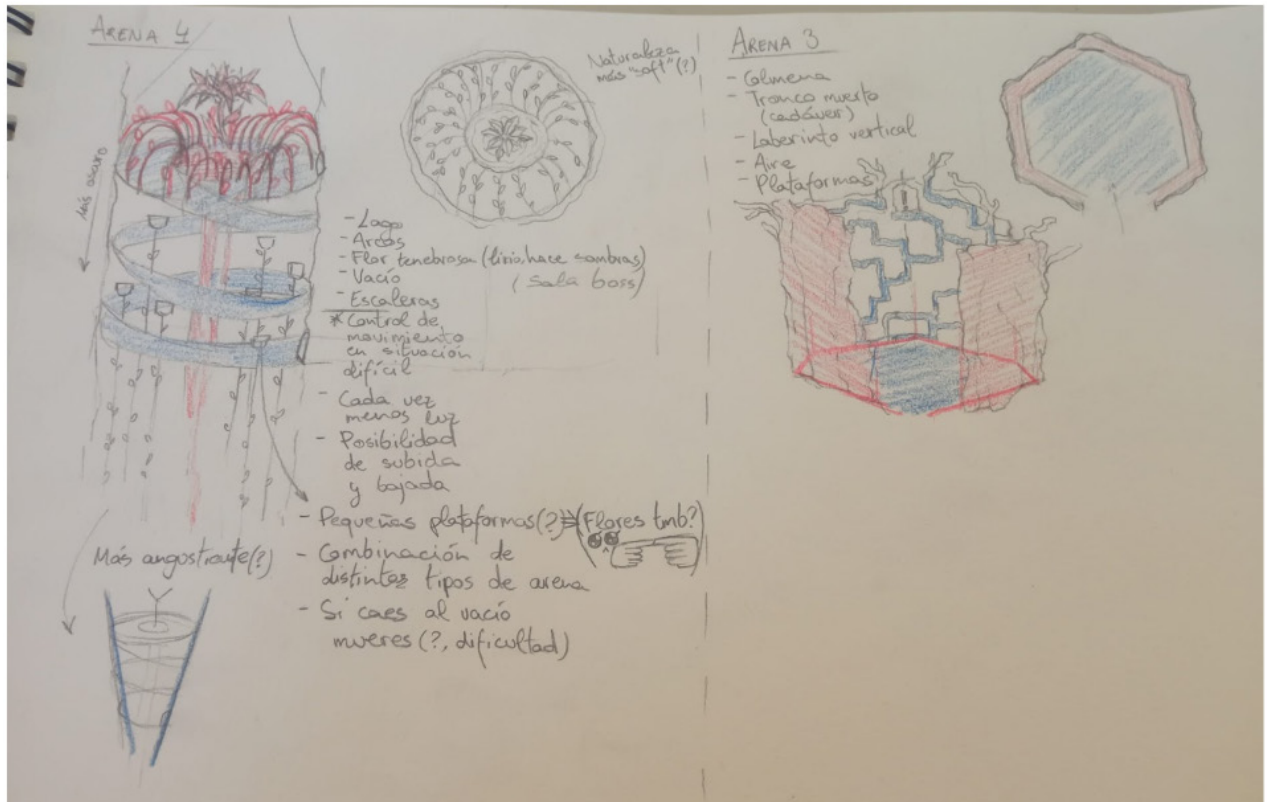 ARENA 4
Más oscuro
Naturaleza
más "soft" (?)
- Lago
- Arcos
- Flor tenebrosa (lirio, hace sombras)
- Vacío
(Sala boss)
- Escaleras
* Control de
movimiento
en situación
difícil
- Cada vez
menos luz
- Posibilidad
de subida
y bajada
- Pequeñas plataformas (?) (Flores tmb?)
- Combinación de
distintos tipos de arena
- Si caes al vacío
mueres (?, dificultad)
Más angustiante (?)
ARENA 3
- Colmena
- Tronco muerto
(cadáver)
- Laberinto vertical
- Aire
- Plataformas